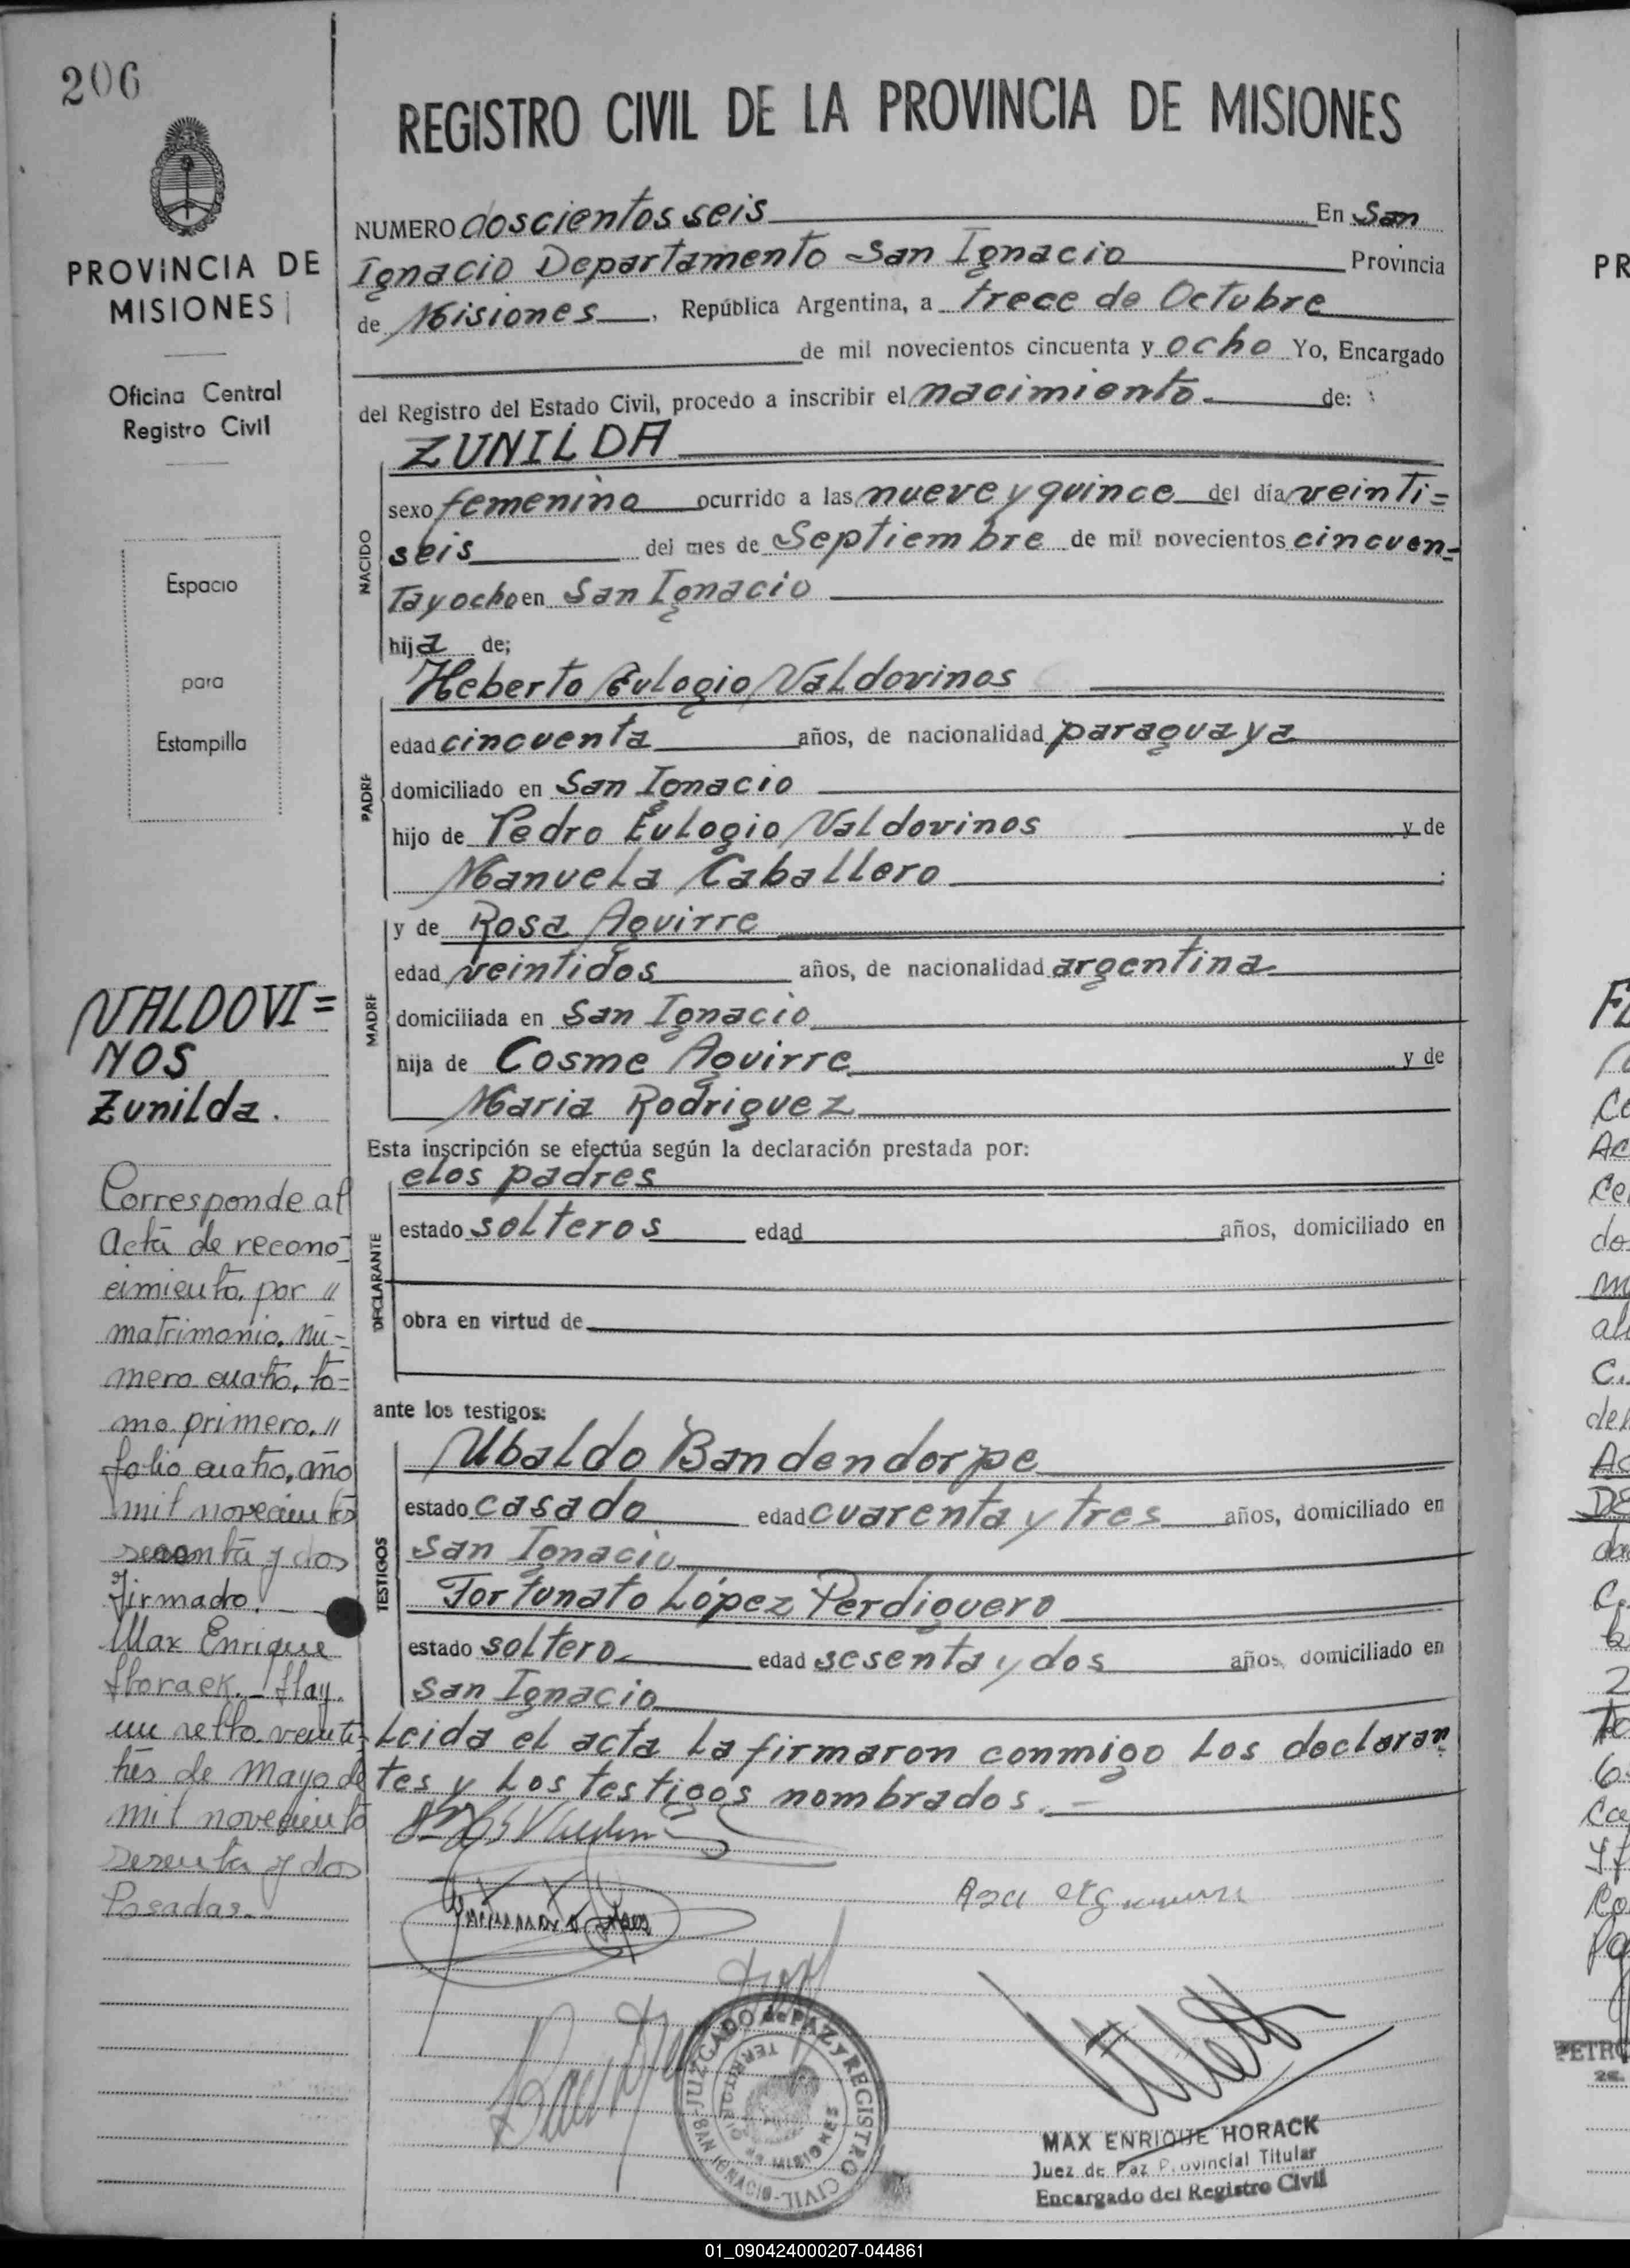 206
PROVINCIA DE
MISIONES
Oficina Central
Registro Civil
Espacio
para
Estampilla
VALDOVI=
NOS
Zunilda.
Corresponde al
acta de recono-
cimiento, por "
matrimonio, nú-
mero cuatro, to-
mo primero, "
folio cuatro, año
mil novecientos
sesenta y dos
Firmado.
Max Enrique
Horack. Hay
un sello. veinti-
trés de Mayo de
mil novecientos
sesenta y dos
Posadas.
REGISTRO CIVIL DE LA PROVINCIA DE MISIONES
NUMERO doscientos seis En San
Ignacio Departamento San Ignacio Provincia
de Misiones, República Argentina, a trece de Octubre
de mil novecientos cincuenta y ocho Yo, Encargado
del Registro del Estado Civil, procedo a inscribir el nacimiento de:
ZUNILDA
NACIDO
sexo femenino ocurrido a las nueve y quince del día veinti=
seis del mes de Septiembre de mil novecientos cincuen=
ta y ocho en San Ignacio
hija de;
PADRE
Heberto Eulogio Valdovinos
edad cincuenta años, de nacionalidad paraguaya
domiciliado en San Ignacio
hijo de Pedro Eulogio Valdovinos y de
Manuela Caballero
MADRE
y de Rosa Aguirre
edad veintidos años, de nacionalidad argentina
domiciliada en San Ignacio
hija de Cosme Aguirre y de
Maria Rodriguez
Esta inscripción se efectúa según la declaración prestada por:
DECLARANTE
elos padres
estado solteros edad años, domiciliado en
obra en virtud de
ante los testigos:
TESTIGOS
Ubaldo Bandendorpe
estado casado edad cuarenta y tres años, domiciliado en
San Ignacio
Fortunato López Perdiguero
estado soltero edad sesenta y dos años, domiciliado en
San Ignacio
Leida el acta la firmaron conmigo los declaran
tes y los testigos nombrados.
JUZGADO de PAZ y REGISTRO CIVIL - SAN IGNACIO
TERRITORIO DE MISIONES
MAX ENRIQUE HORACK
Juez de Paz Provincial Titular
Encargado del Registro Civil
PR
PETRO
01_090424000207-044861